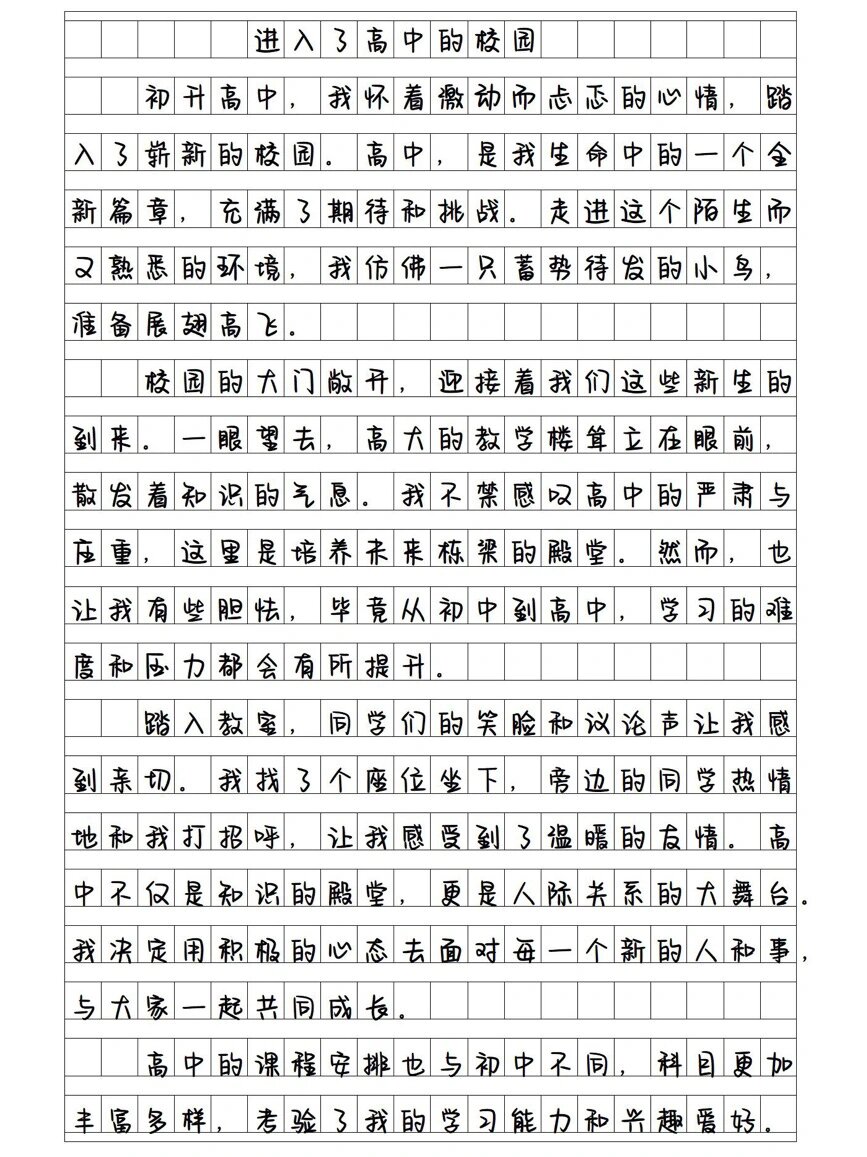 进入了高中的校园
初升高中，我怀着激动而忐忑的心情，踏
入了崭新的校园。高中，是我生命中的一个全
新篇章，充满了期待和挑战。走进这个陌生而
又熟悉的环境，我仿佛一只蓄势待发的小鸟，
准备展翅高飞。
校园的大门敞开，迎接着我们这些新生的
到来。一眼望去，高大的教学楼耸立在眼前，
散发着知识的气息。我不禁感叹高中的严肃与
庄重，这里是培养未来栋梁的殿堂。然而，也
让我有些胆怯，毕竟从初中到高中，学习的难
度和压力都会有所提升。
踏入教室，同学们的笑脸和议论声让我感
到亲切。我找了个座位坐下，旁边的同学热情
地和我打招呼，让我感受到了温暖的友情。高
中不仅是知识的殿堂，更是人际关系的大舞台。
我决定用积极的心态去面对每一个新的人和事，
与大家一起共同成长。
高中的课程安排也与初中不同，科目更加
丰富多样，考验了我的学习能力和兴趣爱好。